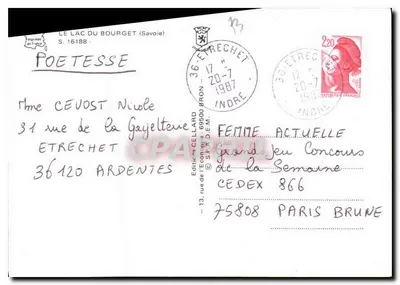 LE LAC DU BOURGET (Savoie)
S. 16188
POETESSE
Mme CEVOST Nicole
31 rue de la Gayelterie
ETRECHET
36120 ARDENTES
Editions CELLARD
13, rue de l'Economie 69500 BRON
36-ETRECHET
20-7
1987
INDRE
36-ETRECHET
20-7
INDRE
2,20
FEMME ACTUELLE
Grand jeu Concours
de la Semaine
CEDEX 866
75808 PARIS BRUNE